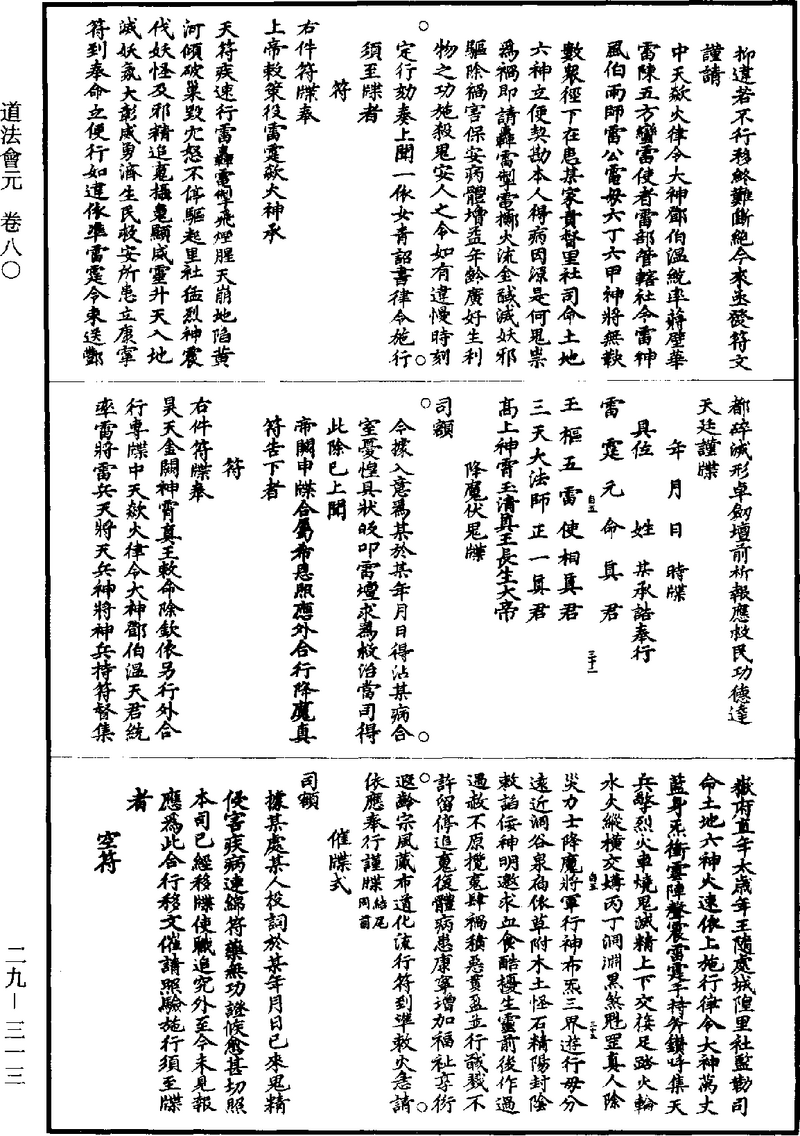 抑違若不行移終難斷絕今來䒱發符文
謹請
中天欻火律令大神鄧伯溫統率蔣壁華
雷陳五方蠻雷使者雷部管轄社令雷神
風伯雨師雷公電母六丁六甲神將無鞅
數衆徑下在患某家責督里社司命土地
六神立便契勘本人得病因源是何鬼祟
爲禍即請轟雷掣電擲火流金馘滅妖邪
驅除禍害保安病體增益年齡廣好生利
物之功施殺鬼安人之令如有違慢時刻
定行劾奏上聞一依女青詔書律令施行
須至牒者
符
右件符牒奉
上帝敕策役雷霆欻火神承
天符疾速行雷轟電掣飛煙腥天崩地陷黃
河傾破巢毀穴怒不停驅起里社猛烈神震
伐妖怪及邪精追鬼攝魂顯威靈升天入地
滅妖氛大彰威勇濟生民收安所患立康寧
符到奉命立便行如違依準雷霆令束送酆
都碎滅形卓劒壇前祈報應救民功德達
天廷謹牒
年月日 時牒
具位 姓 某承誥奉行
雷霆元命真君
玉樞五雷使相真君
三天大法師正一真君
高上神霄玉清真王長生大帝
降魔伏鬼牒
司額
今據入意爲某於某年月日得沾某病合
室憂惶具狀皈叩雷壇求爲救治當司得
此除已上聞
帝闕申牒合屬希恩照應外合行降魔真
符告下者
符
右件符牒奉
昊天金闕神霄真王敕命除欽依另行外合
行專牒中天欻火律令大神鄧伯溫天君統
率雷將雷兵天將天兵神將神兵持符督集
嶽府直年太歲年王隨處城隍里社監勒司
命土地六神火速依上施行律令大神萬丈
藍身炁衝雲陣聲震雷霆手持斧鑽呼集天
兵擎烈火車燒鬼滅精上下交接足踏火輪
水火縱橫交媾丙丁洞淵黑煞魁罡真人除
災力士降魔將軍行神布炁三界遊行毋分
遠近洞谷泉扃依草附木土怪石精陽封陰
敕諂佞神明邀求血食酷擾生靈前後作過
過赦不原攬鬼肆禍積惡貫盈並行馘戮不
許留停追魂復體病患康寧增加福祉享衍
遐齡宗風藏布道化流行符到準敕火急請
依應奉行謹牒結尾同前
催牒式
司額
據某處某人投詞於某年月日已來鬼精
侵害疾病連綿符藥無功證候愈甚切照
本司已經移牒使職追究外至今未見報
應爲此合行移文催請照驗施行須至牒
者
空符
道法會元 卷八〇
二九－三一三